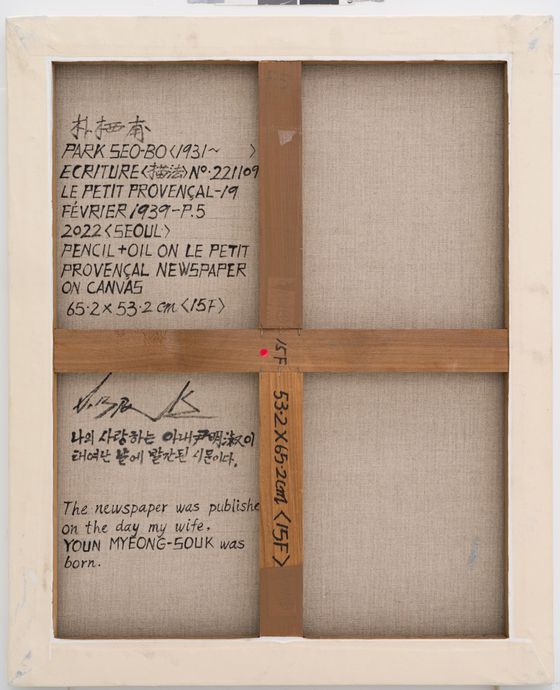 朴栖甫
PARK SEO-BO〈1931~ 〉
ECRITURE〈描法〉No.221109
LE PETIT PROVENÇAL-19
FÉVRIER 1939-P.5
2022〈SEOUL〉
PENCIL+OIL ON LE PETIT
PROVENÇAL NEWSPAPER
ON CANVAS
65.2×53.2 cm〈15F〉
15F
53.2×65.2cm〈15F〉
나의 사랑하는 아내 尹明淑이
태어난 날에 발간된 신문이다.
The newspaper was publishe
on the day my wife.
YOUN MYEONG-SOUK was
born.